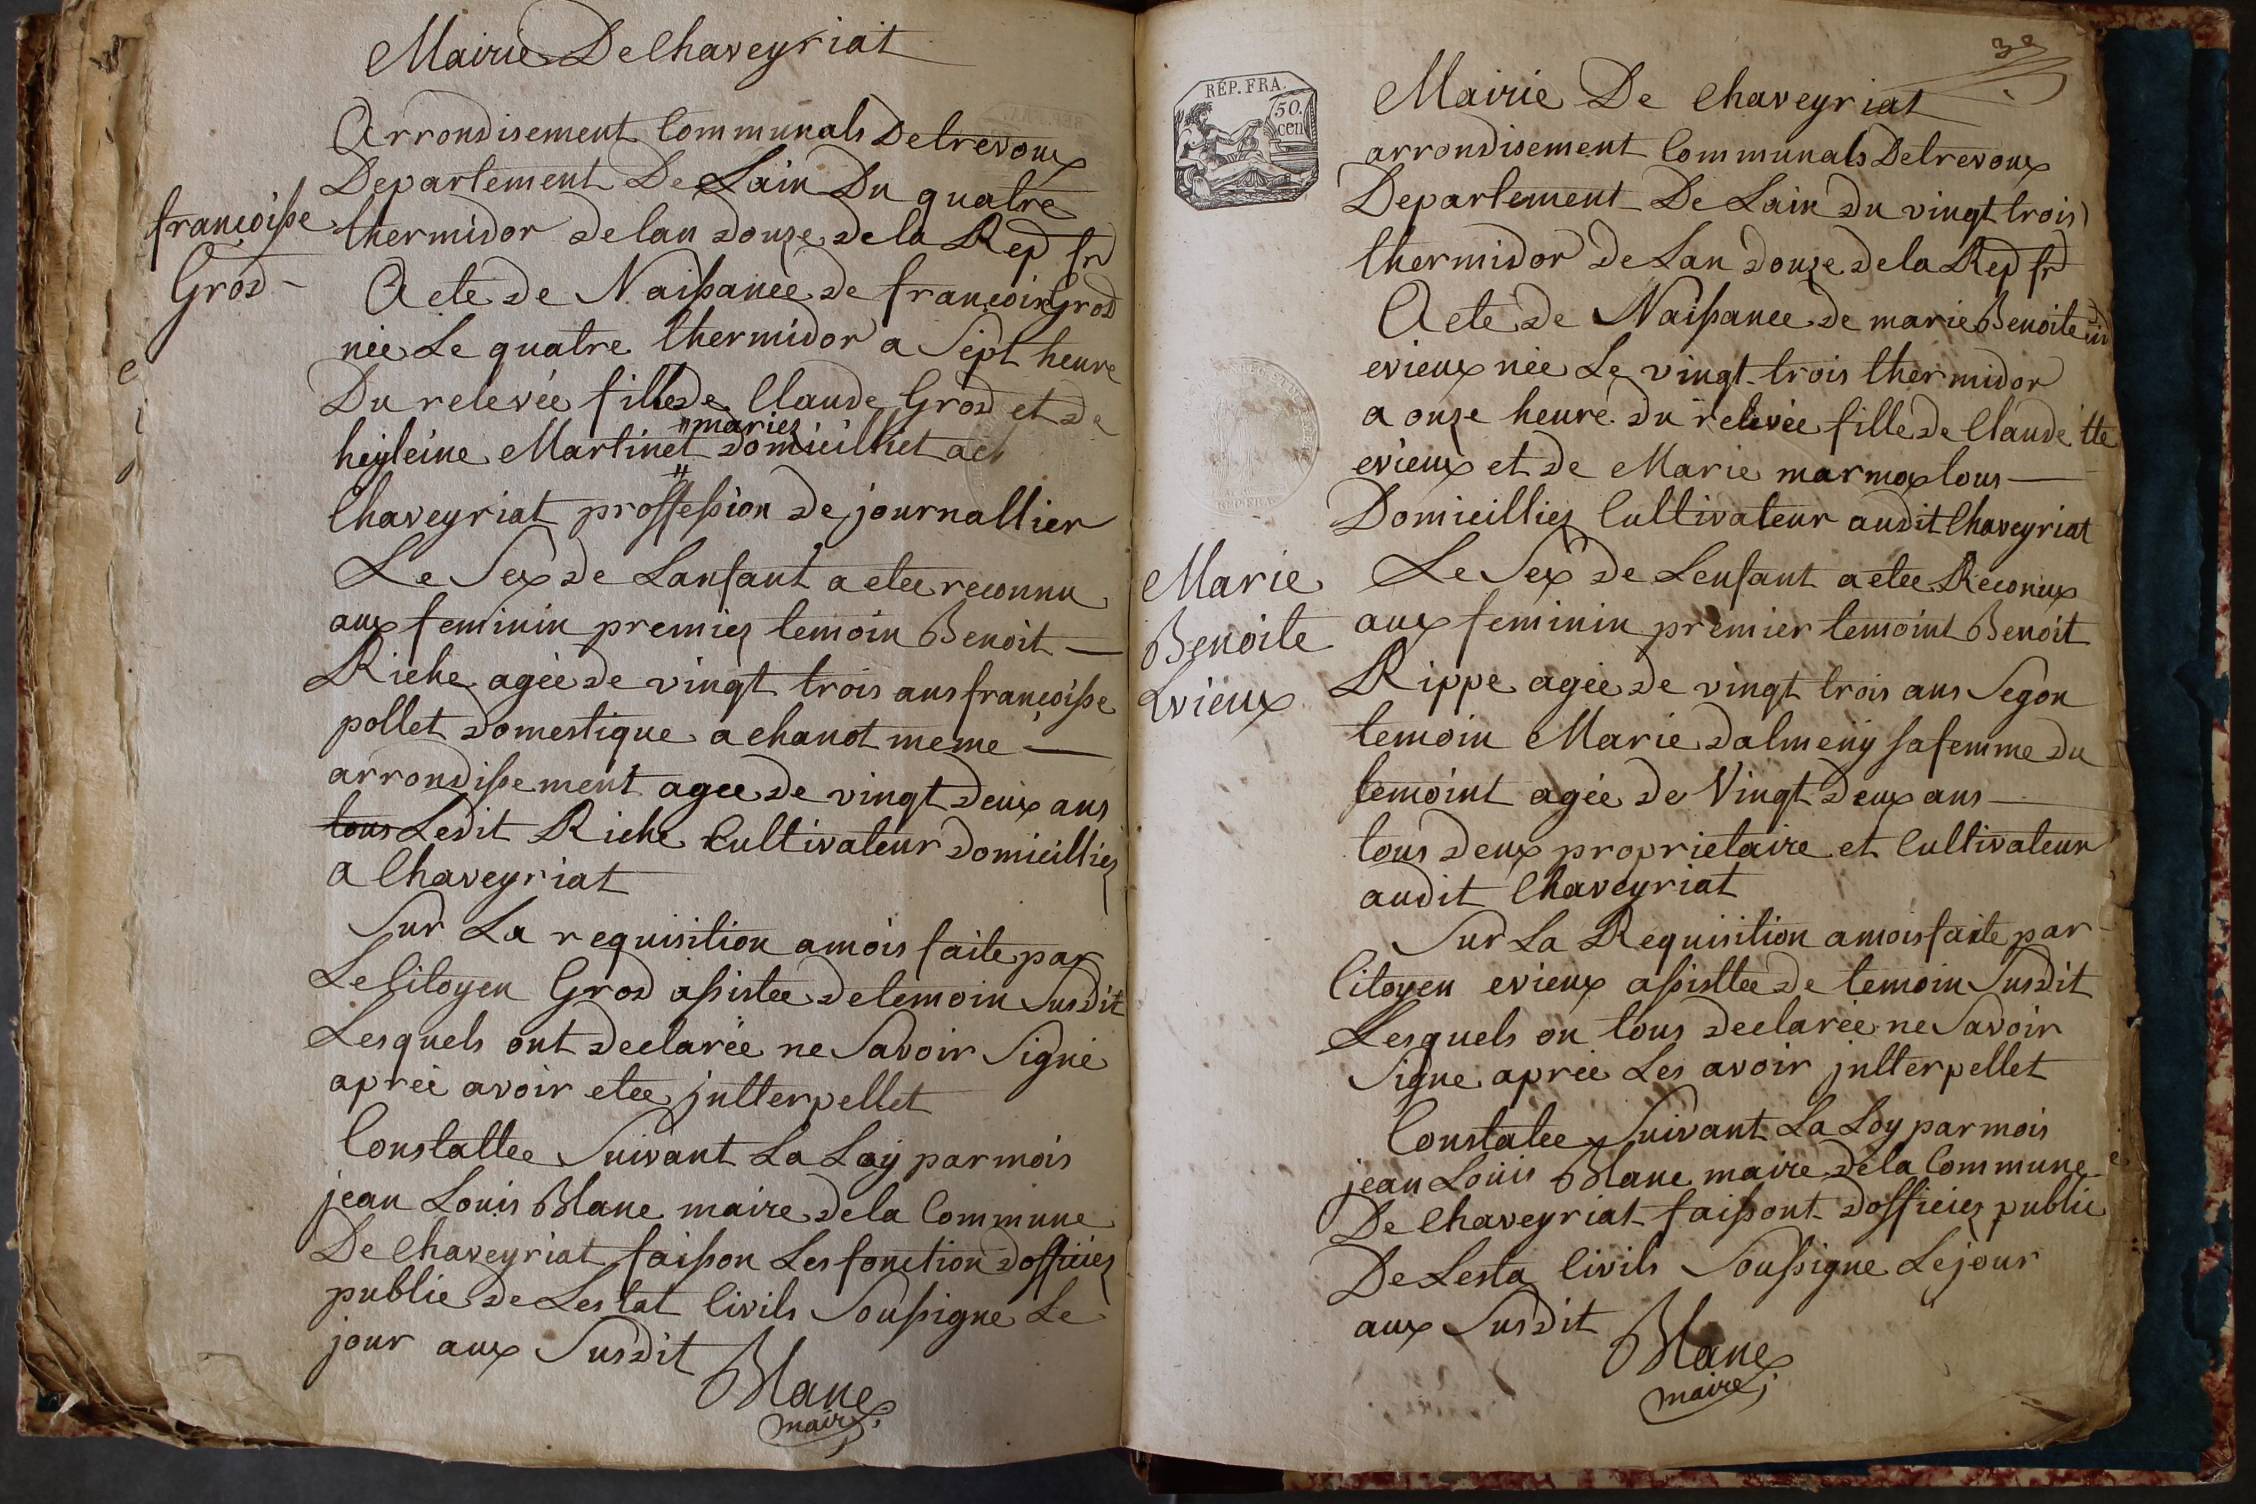 Mairie De Chaveyriat
Arrondisement Communals De trevoux
Departement De Lain Du quatre
thermidor de lan douze de la Rep fr
françoisse
Gros
Acte de Naissance de françoise Gros
née Le quatre thermidor a Sept heure
Du relevée fille de Claude Gros et de
mariez
heyleine Martinet domicilliet a
Chaveyriat proffession de journallier
Le Sex de Lanfant a etee reconnu
aux feminin premiez temoin Benoit
Riche agée de vingt trois ans françoisse
pollet domestique a chanot meme
arrondissement agee de vingt deux ans
tous Ledit Riche Cultivateur domicilliez
a Chaveyriat
Sur La requisition a mois faite par
Le Citoyen Gros assistee de temoin Susdit
Lesquels ont declarée ne Savoir Signé
aprée avoir etee jntterpellet
Constattee Suivant La Loy par mois
jean Louis Blanc maire de la Commune
De Chaveyriat faisson Les fonction dofficiez
public de Lestat Civils Soussigne Le
jour aux Susdit
Blanc
maire
RÉP. FRA.
50.
cen
Mairie De Chaveyriat
arrondisement Communals De trevoux
Departement De Lain du vingt trois
thermidor de Lan douze de la Rep fr
Acte de Naissance de marie Benoite
evieux née Le vingt trois thermidor
a onze heure du relevée fille de Claude
evieux et de Marie marmox tous
Domicilliez Cultivateur audit Chaveyriat
Marie
Benoite
Evieux
Le Sex de Lenfant a etee Reconux
aux feminin premier temoint Benoit
Rippe agée de vingt trois ans Segon
temoin Marie dalmeny sa femme du
temoint agée de Vingt deux ans
tous deux proprietaire et Cultivateur
audit Chaveyriat
Sur La Requisition a mois faite par
Citoyen evieux assisttee de temoin Susdit
Lesquels on tous declarée ne Savoir
Signe aprée Les avoir jntterpellet
Constatee Suivant La Loy par mois
jean Louis Blanc maire de la Commune
De Chaveyriat faissont dofficiez public
De Lesta Civils Soussigne Le jour
aux Susdit
Blanc
maire